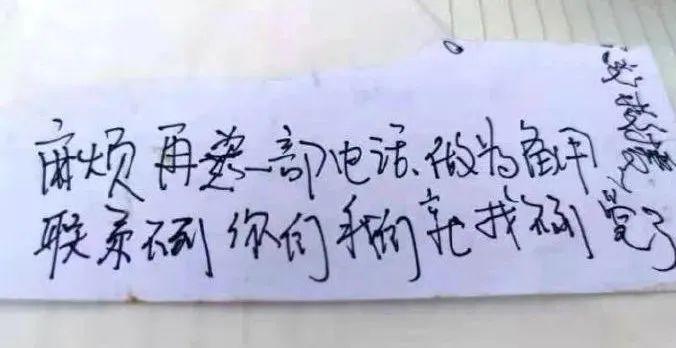 麻烦再装一部电话、做为备用
联系不到你们我们就找不到党了